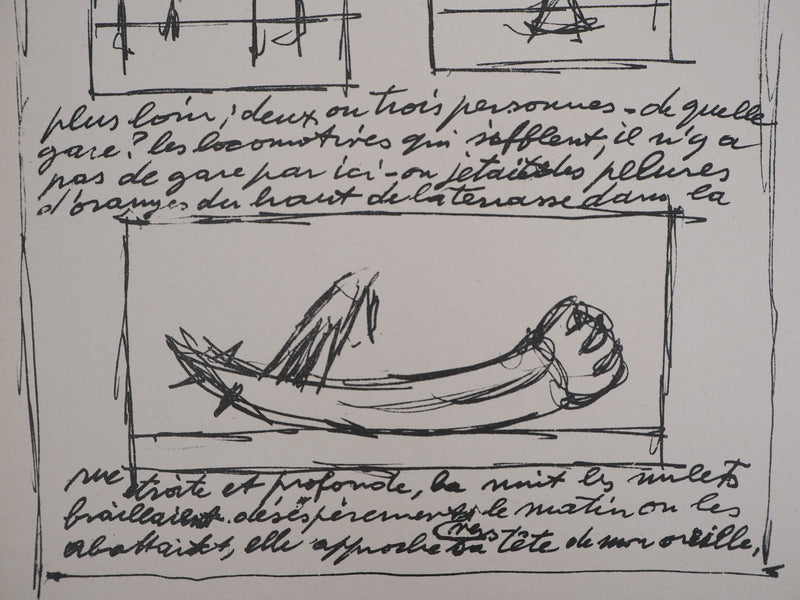 plus loin, deux ou trois personnes - de quelle
gare? les locomotives qui sifflent, il n'y a
pas de gare par ici - on jetait des pelures
d'oranges du haut de la terrasse dans la
rue étroite et profonde, la nuit les mulets
braillaient désespérement, le matin on les
abattait, elle approche sa tête de mon oreille,